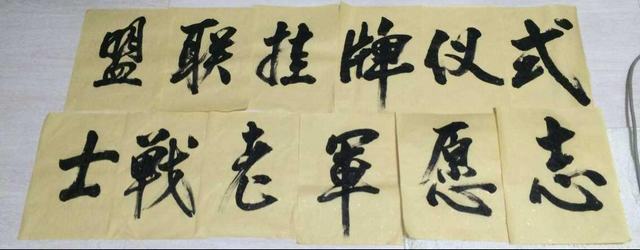 盟联挂牌仪式
士戦老軍愿志